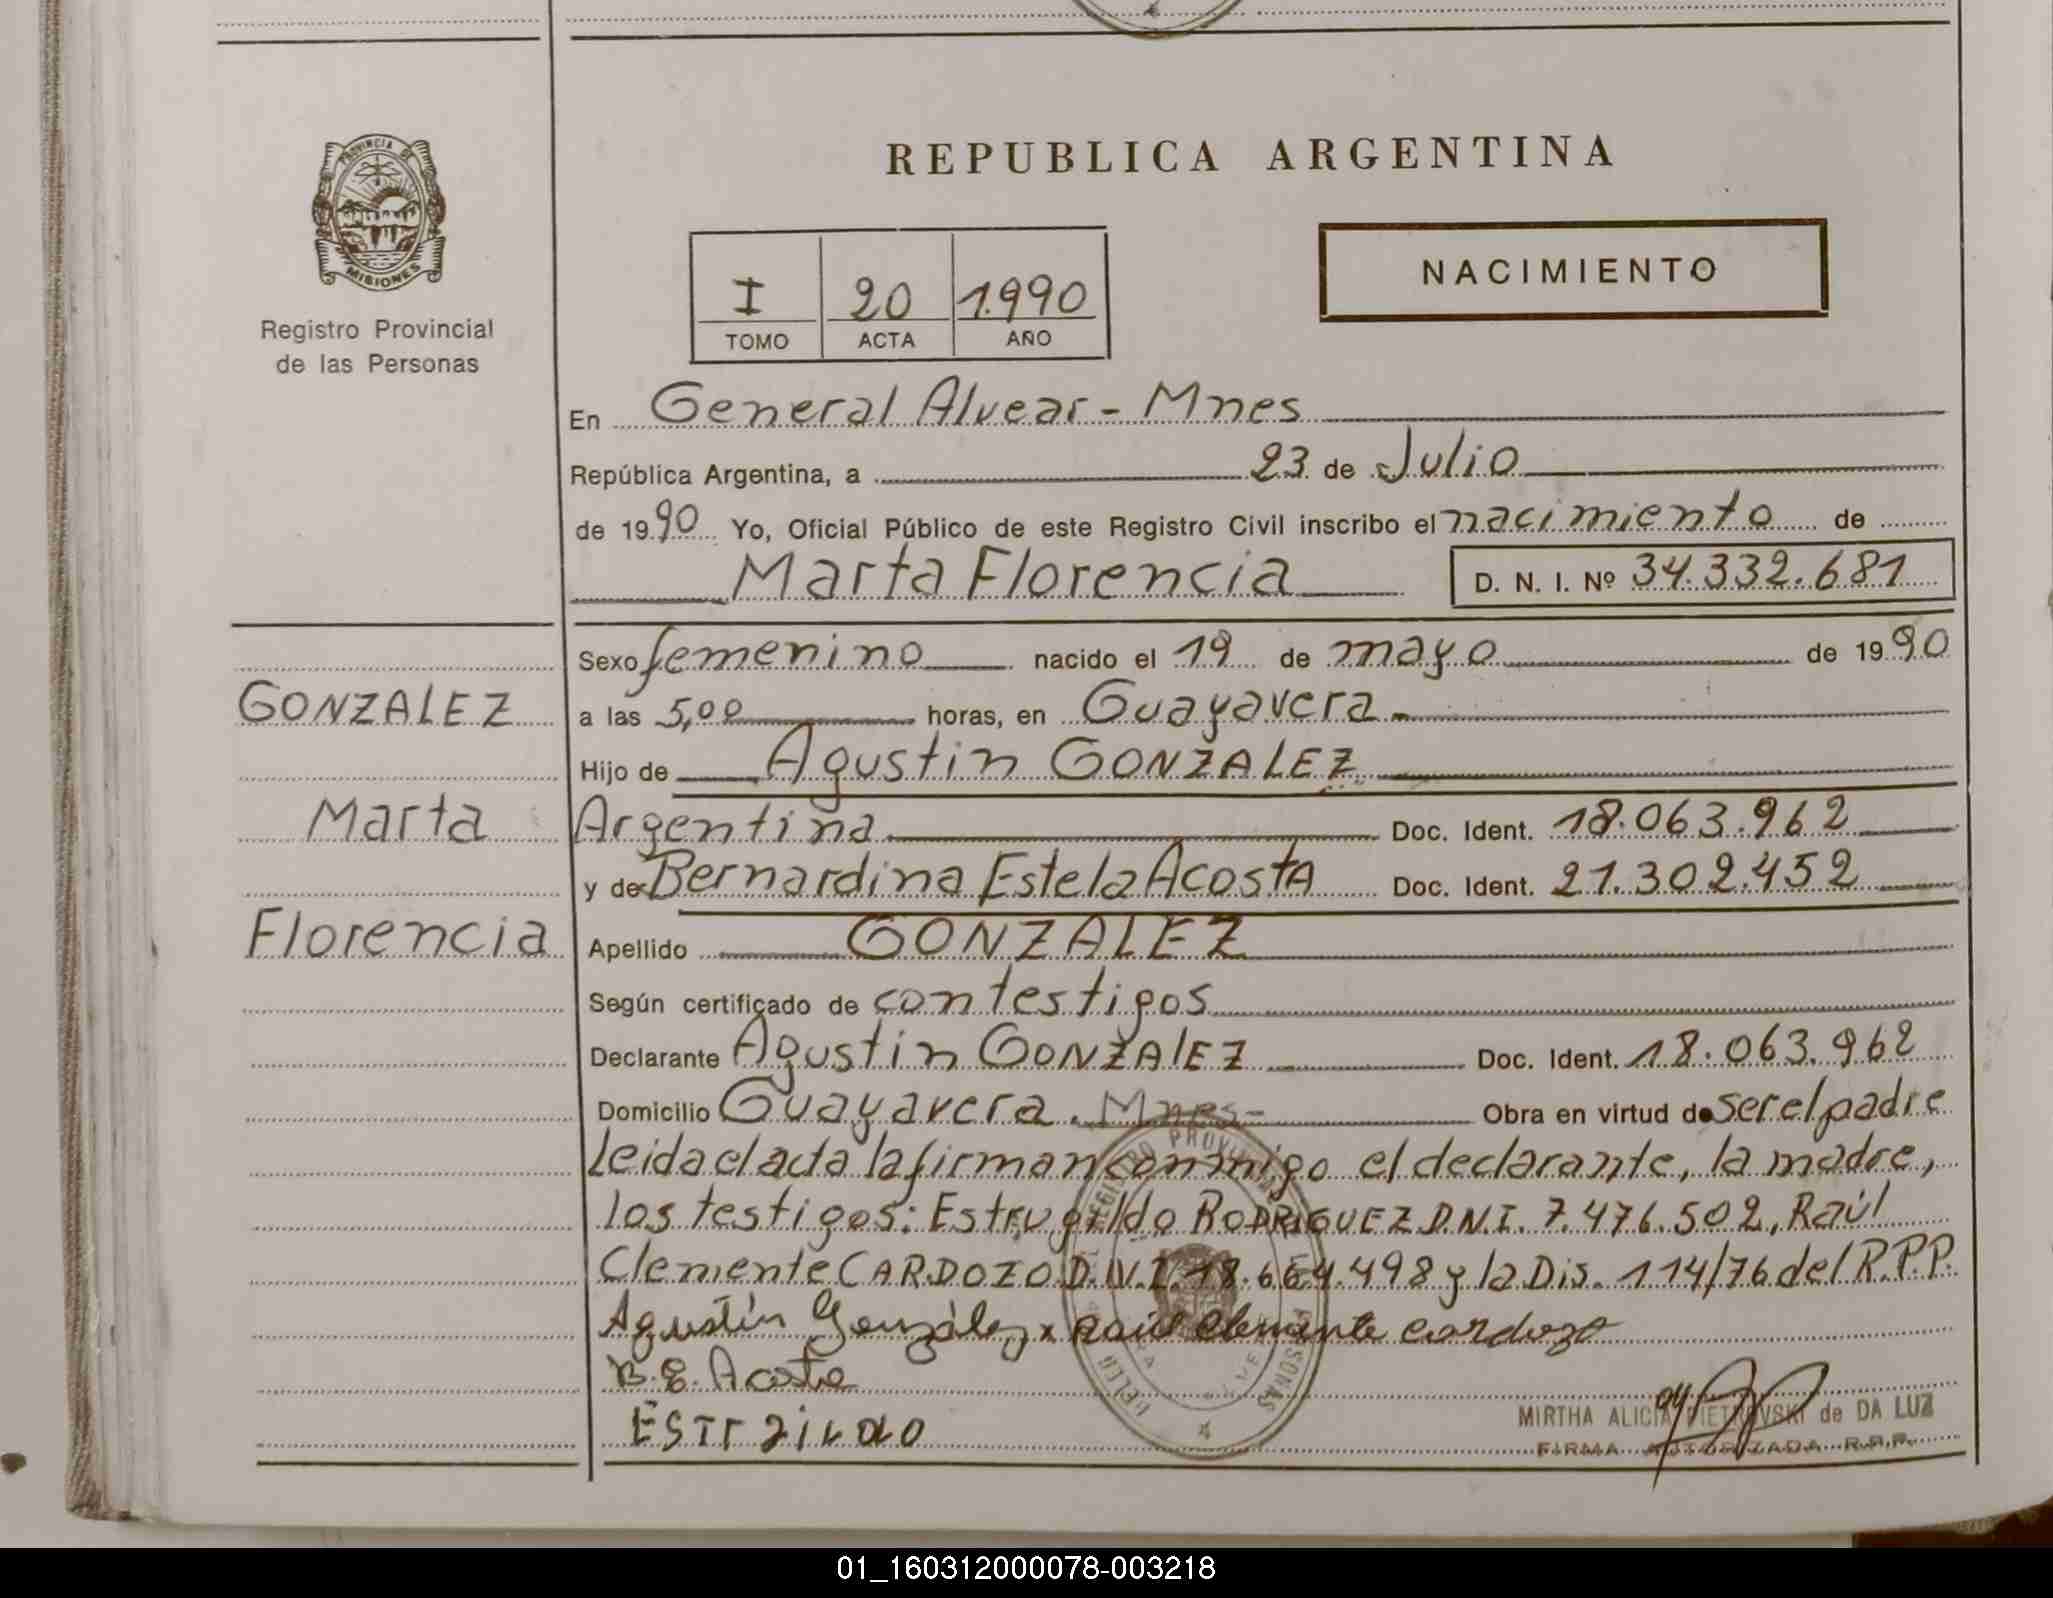 REPUBLICA ARGENTINA
PROVINCIA DE
MISIONES
Registro Provincial
de las Personas
I 20 1.990
TOMO ACTA AÑO
NACIMIENTO
En General Alvear - Mnes
República Argentina, a 23 de Julio
de 1990 Yo, Oficial Público de este Registro Civil inscribo el nacimiento de
Marta Florencia D. N. I. Nº 34.332.681
Sexo femenino nacido el 19 de mayo de 1990
GONZALEZ a las 5,00 horas, en Guayavera
Hijo de Agustin GONZALEZ
Marta Argentina Doc. Ident. 18.063.962
y de Bernardina Estela Acosta Doc. Ident. 21.302.452
Florencia Apellido GONZALEZ
Según certificado de con testigos
Declarante Agustin GONZALEZ Doc. Ident. 18.063.962
Domicilio Guayavera. Mnes- Obra en virtud de ser el padre
Leida el acta la firman conmigo el declarante, la madre,
los testigos: Estrugildo RODRIGUEZ D.N.I. 7.476.502, Raúl
Clemente CARDOZO D.N.I. 18.664.498 y la Dis. 114/76 del R.P.P.
Agustín González x Raúl Clemente Cardozo
B.E. Acosta
MIRTHA ALICIA PIETROVSKI de DA LUZ
FIRMA AUTORIZADA R.P.P.
01_160312000078-003218